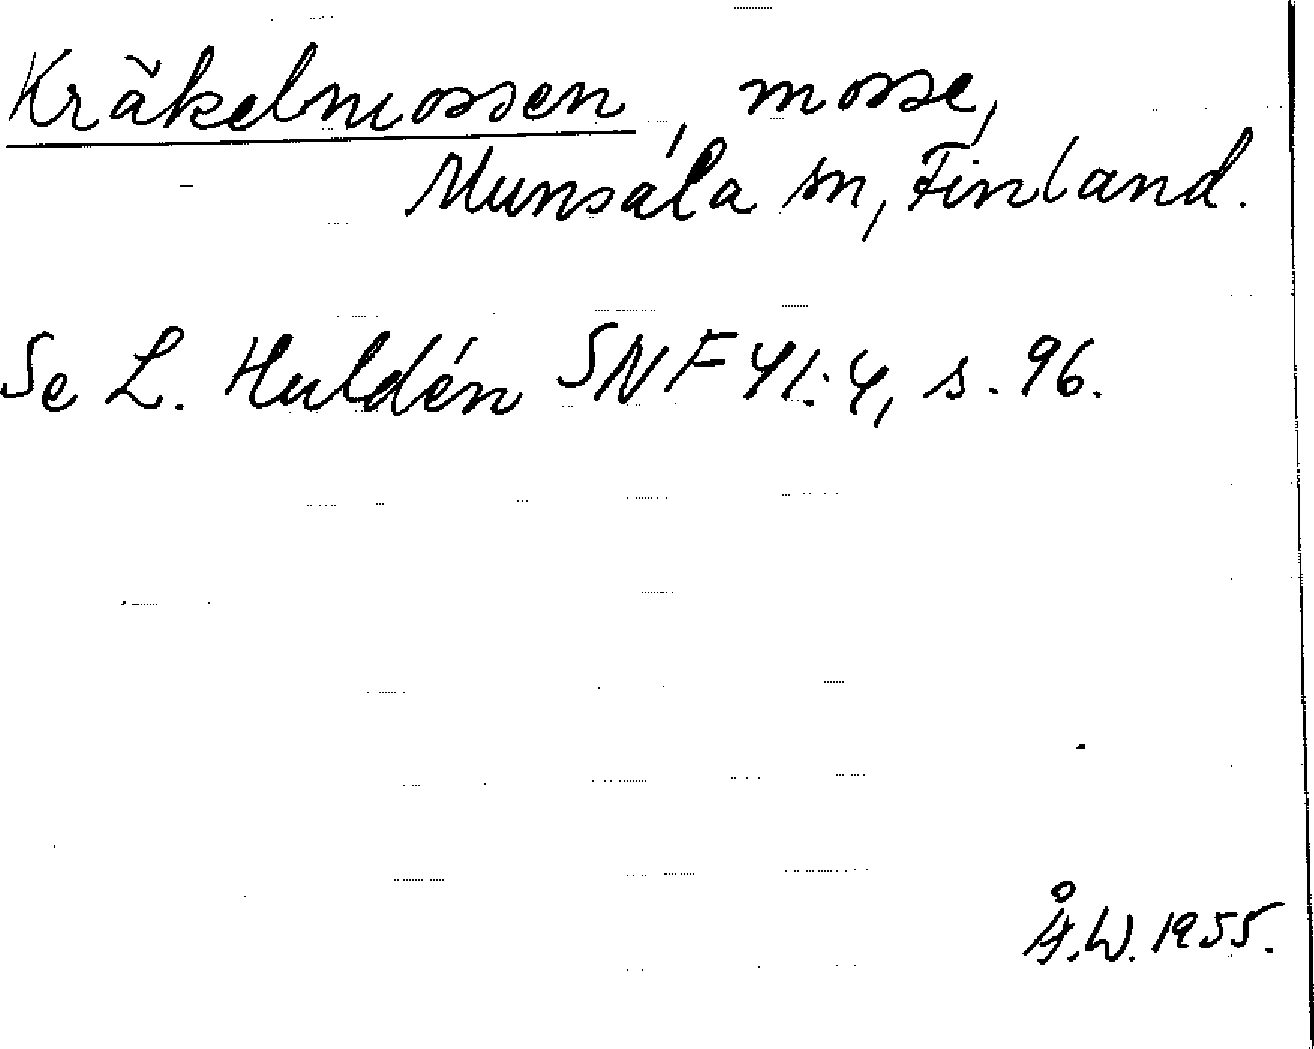 Kräkelmossen, mosse,
Munsala sn, Finland.
Se L. Huldén SNF 41:4, s. 96.
Å.W. 1955.